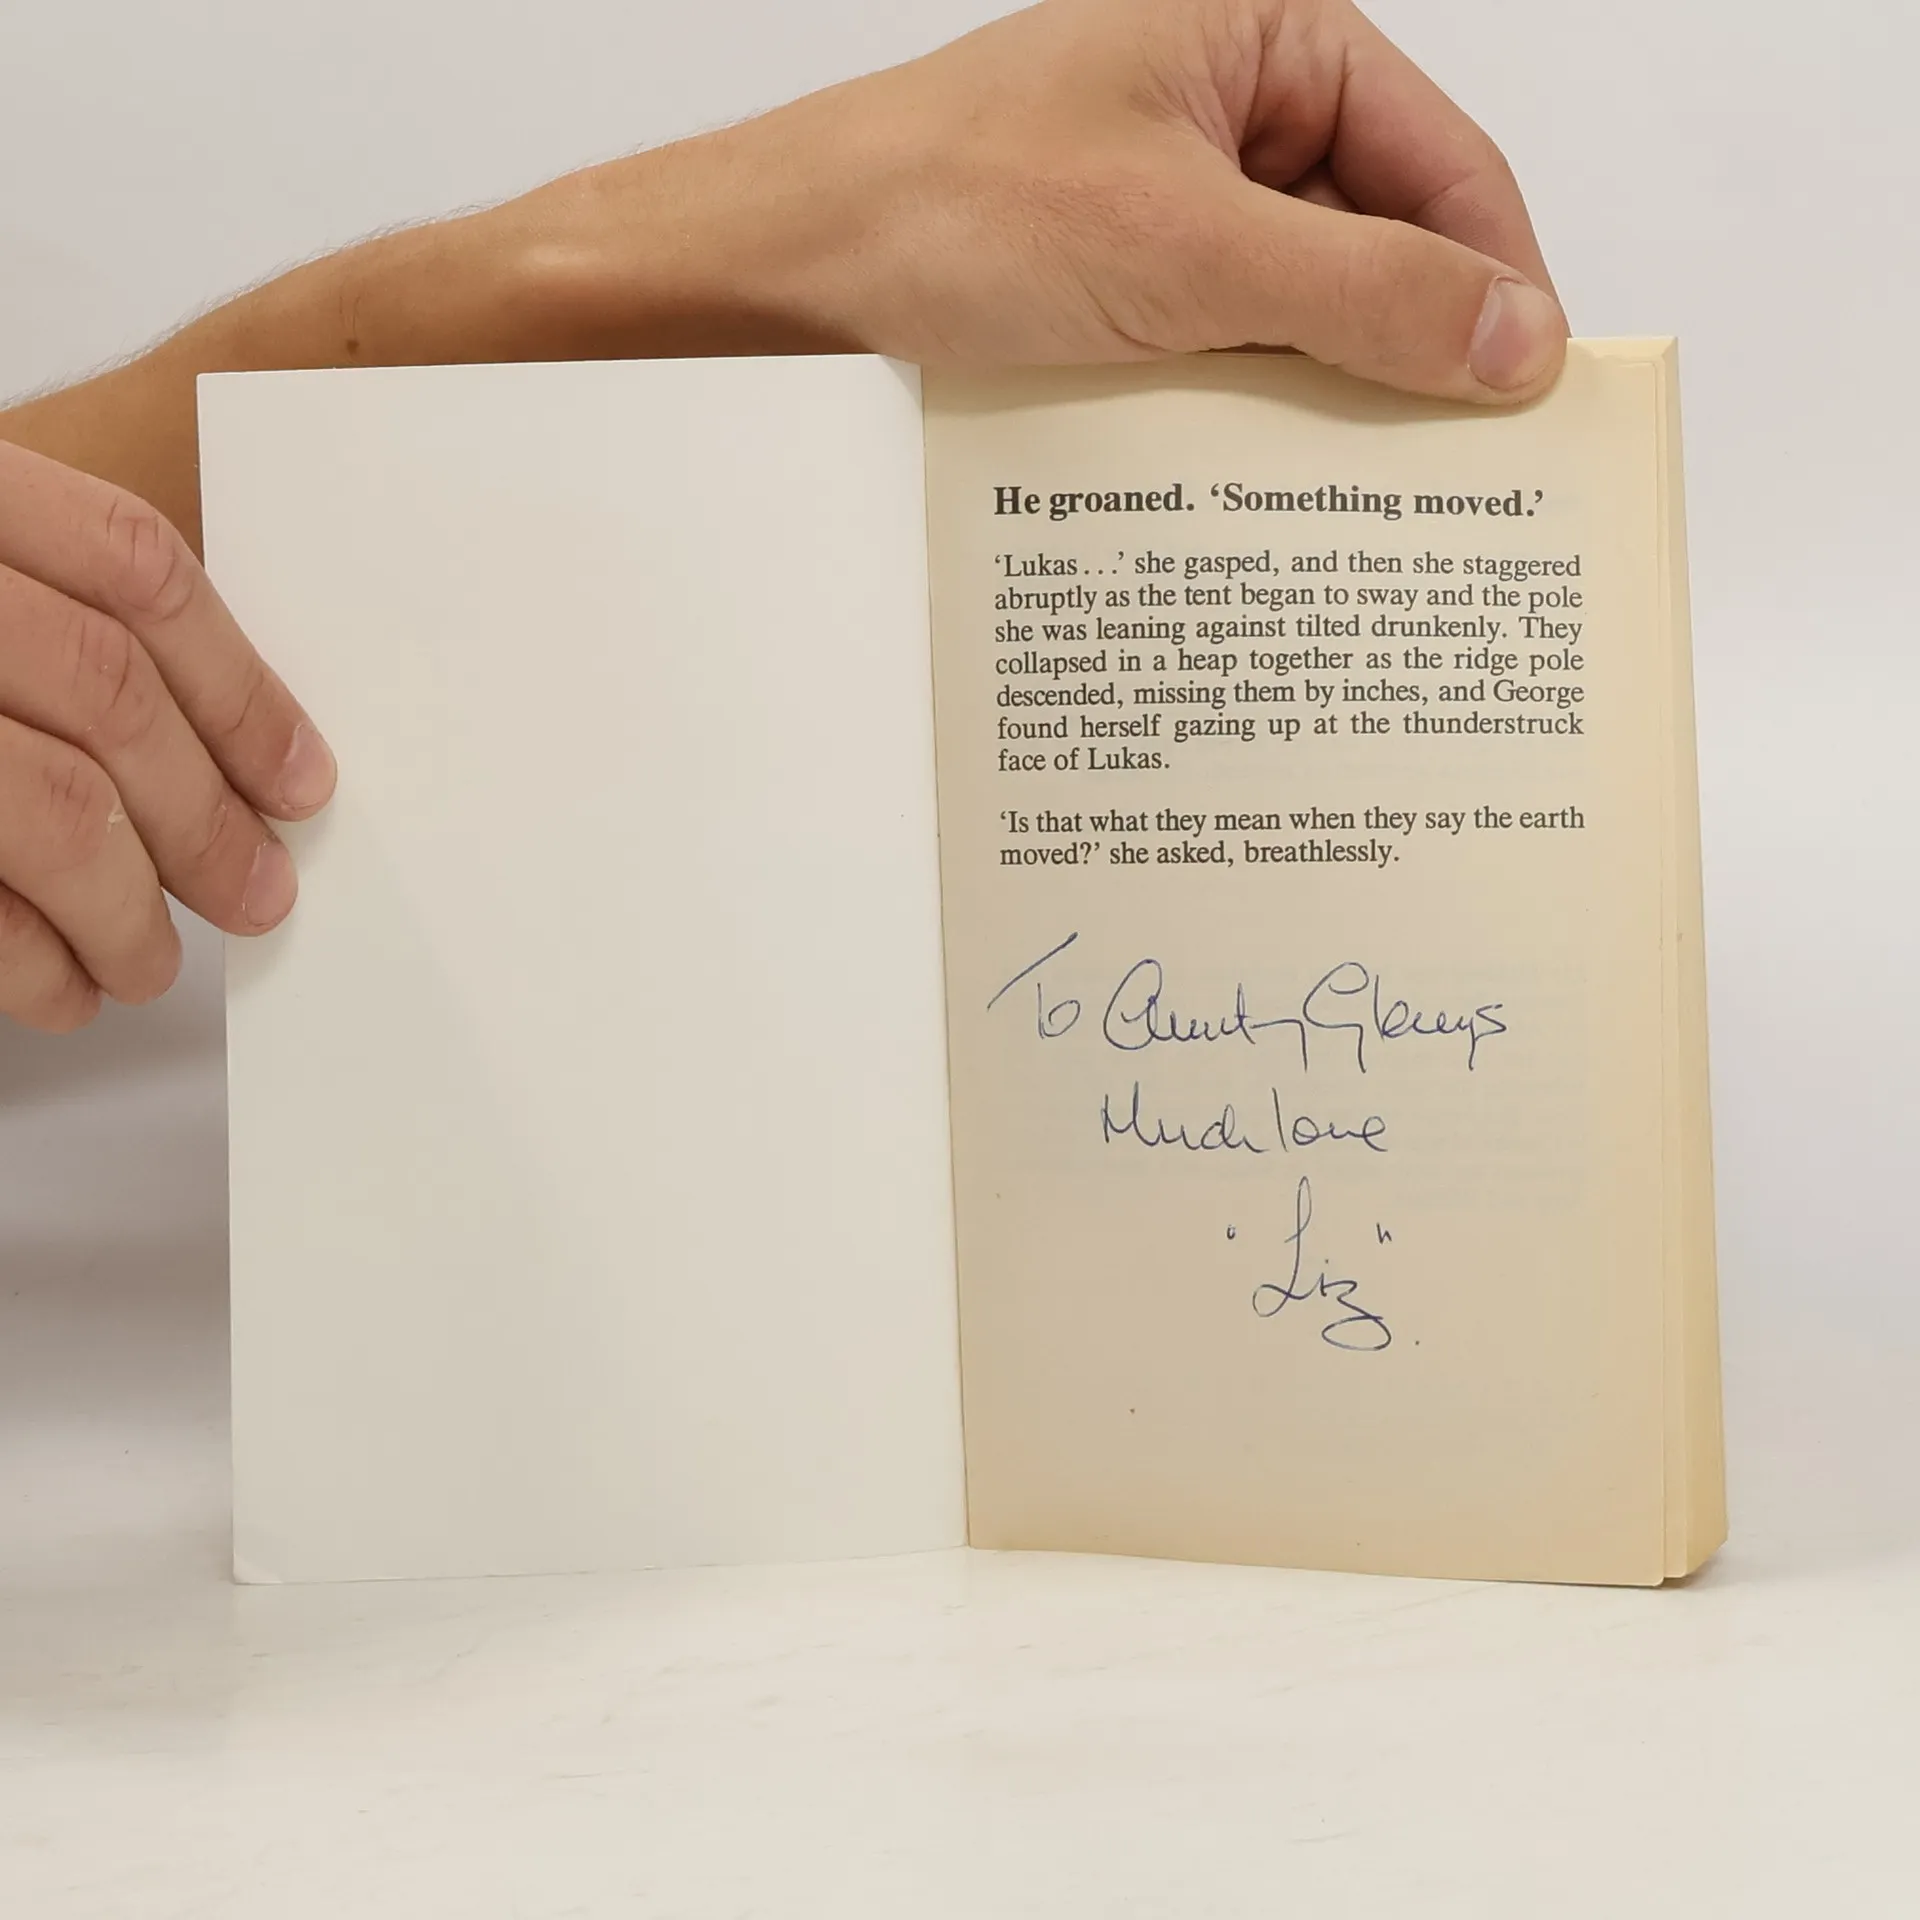 He groaned. ‘Something moved.’
‘Lukas . . .’ she gasped, and then she staggered
abruptly as the tent began to sway and the pole
she was leaning against tilted drunkenly. They
collapsed in a heap together as the ridge pole
descended, missing them by inches, and George
found herself gazing up at the thunderstruck
face of Lukas.
‘Is that what they mean when they say the earth
moved?’ she asked, breathlessly.
To Aunty Gladys
Much love
"Liz".